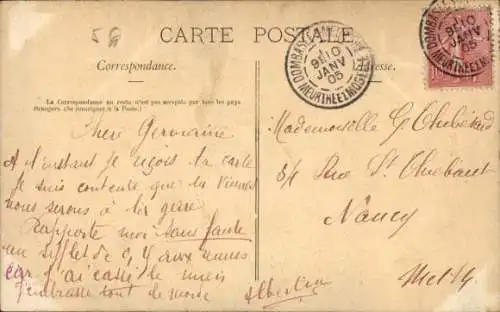 CARTE POSTALE
Correspondance.
Adresse.
La Correspondance au recto n'est pas acceptée par tous les pays
étrangers (Se renseigner à la Poste.)
DOMBASLE
9E 10
JANV
05
MEURTHE ET MOSELLE
Chère Germaine
A l'instant je reçois ta carte
Je suis contente que tu viennes
nous serons à la gare
Rapporte moi sans faute
un sifflet de 0,4 aux
car j'ai cassé le mien
J'embrasse tout le monde
Albertine
Mademoiselle G
84 Rue St Thiebaut
Nancy
Met M